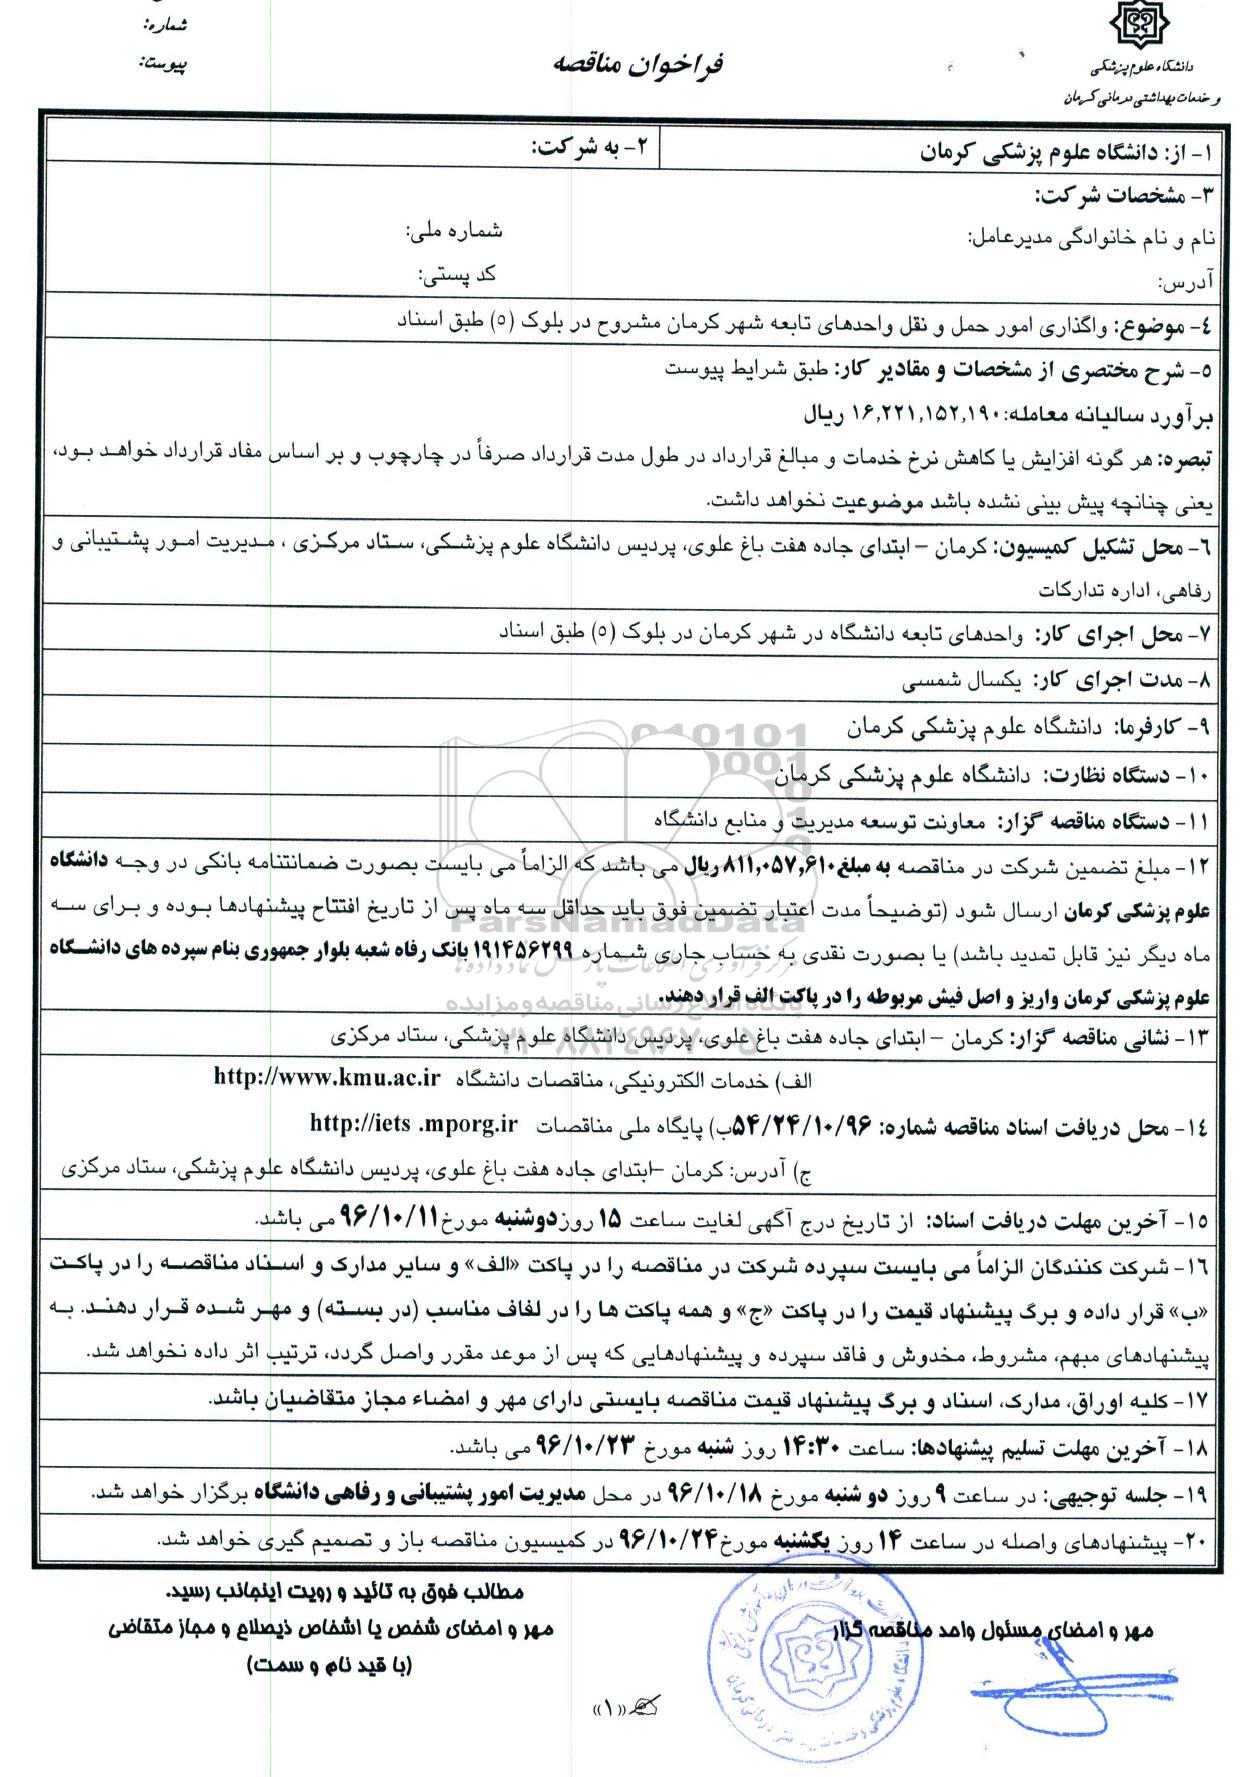 شماره:
پیوست:
فراخوان مناقصه
دانشگاه علوم پزشکی
و خدمات بهداشتی درمانی کرمان
۱- از: دانشگاه علوم پزشکی کرمان
۲- به شرکت:
۳- مشخصات شرکت:
نام و نام خانوادگی مدیرعامل:
شماره ملی:
آدرس:
کد پستی:
٤- موضوع: واگذاری امور حمل و نقل واحدهای تابعه شهر کرمان مشروح در بلوک (٥) طبق اسناد
٥- شرح مختصری از مشخصات و مقادیر کار: طبق شرایط پیوست
برآورد سالیانه معامله: ۱۶,۲۲۱,۱۵۲,۱۹۰ ریال
تبصره: هر گونه افزایش یا کاهش نرخ خدمات و مبالغ قرارداد در طول مدت قرارداد صرفاً در چارچوب و بر اساس مفاد قرارداد خواهد بود،
یعنی چنانچه پیش بینی نشده باشد موضوعیت نخواهد داشت.
٦- محل تشکیل کمیسیون: کرمان – ابتدای جاده هفت باغ علوی، پردیس دانشگاه علوم پزشکی، ستاد مرکزی ، مدیریت امور پشتیبانی و
رفاهی، اداره تدارکات
۷- محل اجرای کار: واحدهای تابعه دانشگاه در شهر کرمان در بلوک (٥) طبق اسناد
۸- مدت اجرای کار: یکسال شمسی
۹- کارفرما: دانشگاه علوم پزشکی کرمان
۱۰- دستگاه نظارت: دانشگاه علوم پزشکی کرمان
۱۱- دستگاه مناقصه گزار: معاونت توسعه مدیریت و منابع دانشگاه
۱۲- مبلغ تضمین شرکت در مناقصه به مبلغ ۸۱۱,۰۵۷,۶۱۰ ریال می باشد که الزاماً می بایست بصورت ضمانتنامه بانکی در وجه دانشگاه
علوم پزشکی کرمان ارسال شود (توضیحاً مدت اعتبار تضمین فوق باید حداقل سه ماه پس از تاریخ افتتاح پیشنهادها بوده و برای سه
ماه دیگر نیز قابل تمدید باشد) یا بصورت نقدی به حساب جاری شماره ۱۹۱۴۵۶۲۹۹ بانک رفاه شعبه بلوار جمهوری بنام سپرده های دانشگاه
علوم پزشکی کرمان واریز و اصل فیش مربوطه را در پاکت الف قرار دهند.
۱۳- نشانی مناقصه گزار: کرمان – ابتدای جاده هفت باغ علوی، پردیس دانشگاه علوم پزشکی، ستاد مرکزی
الف) خدمات الکترونیکی، مناقصات دانشگاه http://www.kmu.ac.ir
۱٤- محل دریافت اسناد مناقصه شماره: ۵۴/۲۴/۱۰/۹۶ ب) پایگاه ملی مناقصات http://iets .mporg.ir
ج) آدرس: کرمان –ابتدای جاده هفت باغ علوی، پردیس دانشگاه علوم پزشکی، ستاد مرکزی
۱٥- آخرین مهلت دریافت اسناد: از تاریخ درج آگهی لغایت ساعت ۱۵ روز دوشنبه مورخ ۹۶/۱۰/۱۱ می باشد.
۱٦- شرکت کنندگان الزاماً می بایست سپرده شرکت در مناقصه را در پاکت «الف» و سایر مدارک و اسناد مناقصه را در پاکت
«ب» قرار داده و برگ پیشنهاد قیمت را در پاکت «ج» و همه پاکت ها را در لفاف مناسب (در بسته) و مهر شده قرار دهند. به
پیشنهادهای مبهم، مشروط، مخدوش و فاقد سپرده و پیشنهادهایی که پس از موعد مقرر واصل گردد، ترتیب اثر داده نخواهد شد.
۱۷- کلیه اوراق، مدارک، اسناد و برگ پیشنهاد قیمت مناقصه بایستی دارای مهر و امضاء مجاز متقاضیان باشد.
۱۸- آخرین مهلت تسلیم پیشنهادها: ساعت ۱۴:۳۰ روز شنبه مورخ ۹۶/۱۰/۲۳ می باشد.
۱۹- جلسه توجیهی: در ساعت ۹ روز دو شنبه مورخ ۹۶/۱۰/۱۸ در محل مدیریت امور پشتیبانی و رفاهی دانشگاه برگزار خواهد شد.
۲۰- پیشنهادهای واصله در ساعت ۱۴ روز یکشنبه مورخ ۹۶/۱۰/۲۴ در کمیسیون مناقصه باز و تصمیم گیری خواهد شد.
مطالب فوق به تائید و رویت اینجانب رسید.
مهر و امضای مسئول واحد مناقصه گزار
مهر و امضای شخص یا اشخاص ذیصلاح و مجاز متقاضی
(با قید نام و سمت)
«۱»
ParsNamadData
مرکز فرآوری اطلاعات پارس نماد داده ها
پایگاه اطلاع رسانی مناقصه و مزایده
۰۲۱-۸۸۳۴۹۶۷۰-۵